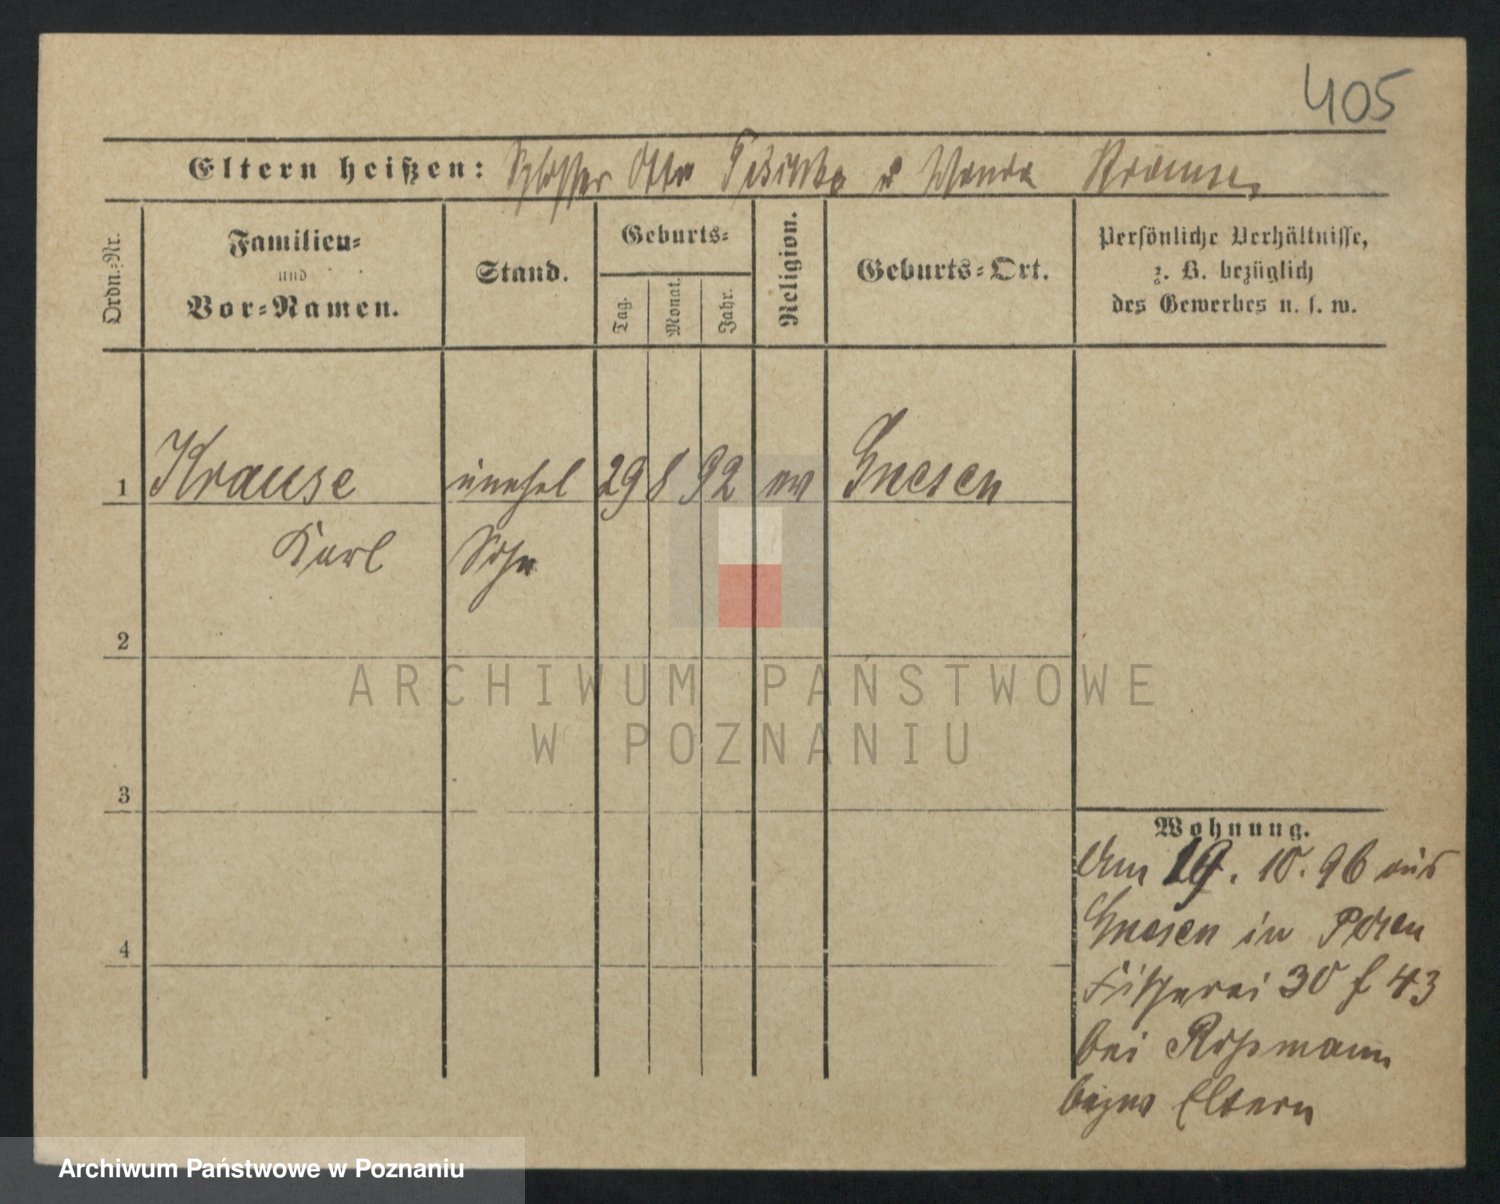 405
Eltern heißen: Schlosser Otto u Wanda Krause
Ordn.-Nr.
Familien-
und
Vor-Namen.
Stand.
Geburts-
Tag.
Monat.
Jahr.
Religion.
Geburts-Ort.
Persönliche Verhältnisse,
z. B. bezüglich
des Gewerbes u. s. w.
1 Krause unehel 29 8 92 ev Gnesen
Karl Sohn
2
3
4
Wohnung.
Am 19. 10. 96 aus
Gnesen in Posen
Fischerei 30 f 43
bei Roßmann
bezw Eltern
ARCHIWUM PAŃSTWOWE
W POZNANIU
Archiwum Państwowe w Poznaniu